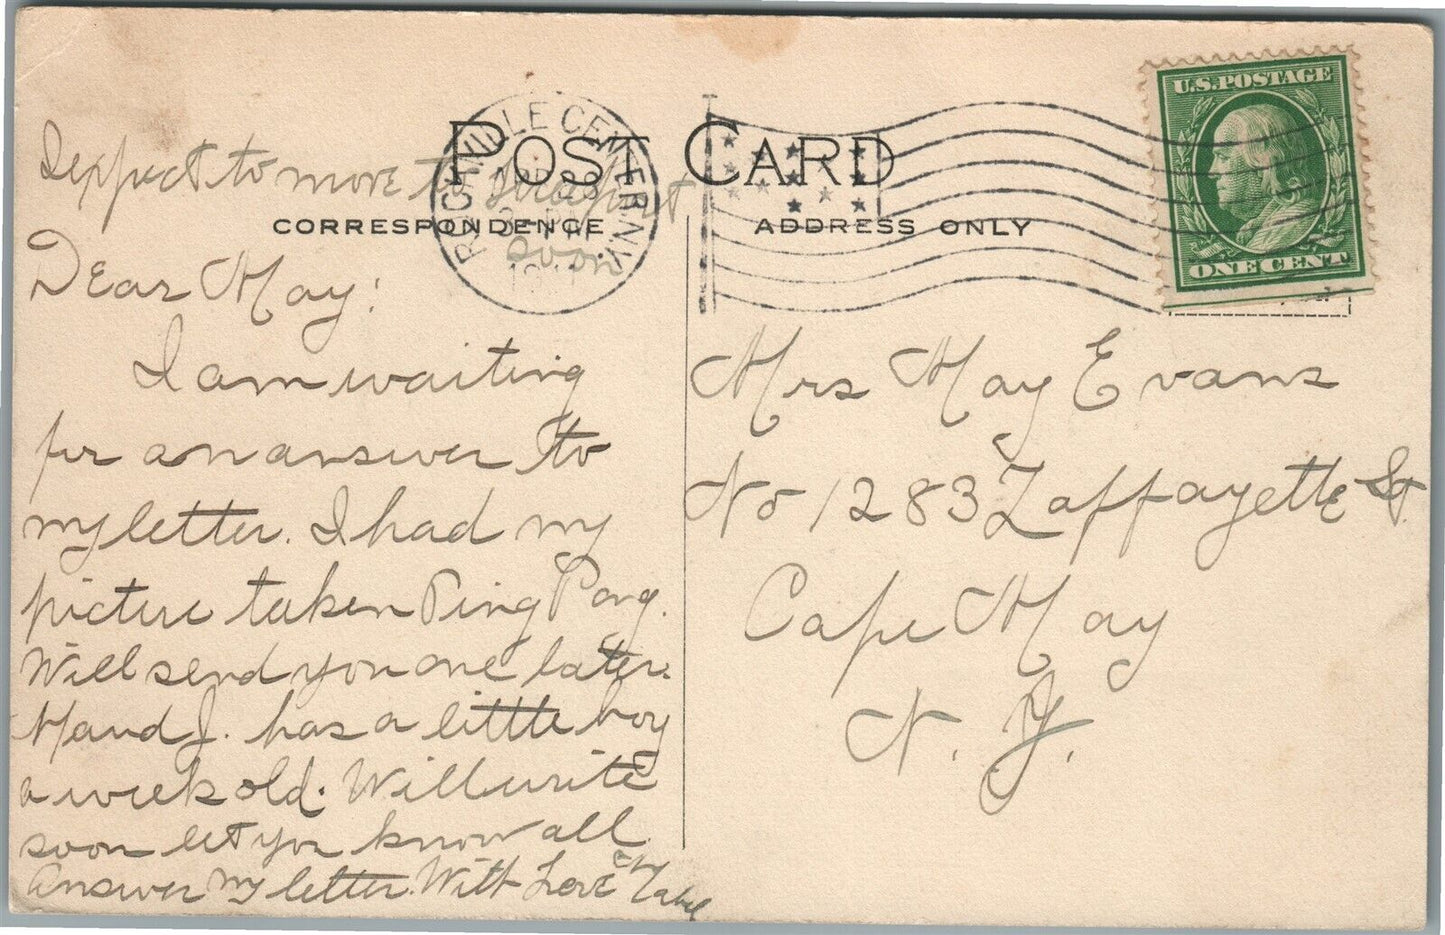 U.S. POSTAGE
ONE CENT
POST CARD
CORRESPONDENCE
ADDRESS ONLY
ROCKVILLE CENTER. N.Y.
APR
I expect to move to Freeport
soon
Dear May:
I am waiting
for an answer to
my letter. I had my
picture taken Ping Pong.
Will send you one later.
Maud J. has a little boy
a week old. Will write
soon let you know all
Answer my letter. With Love
Mrs May Evans
No 1283 Laffayette St.
Cape May
N. J.